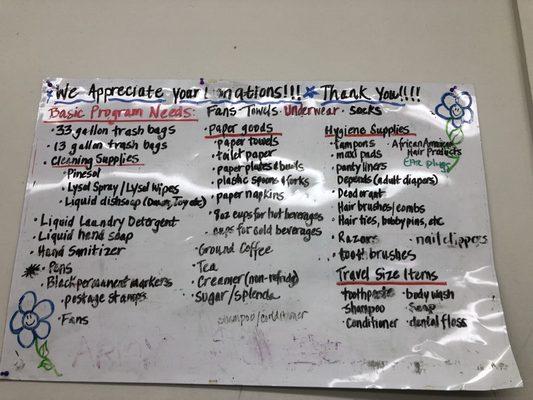 We Appreciate your Donations!!! Thank You!!!!
Basic Program Needs: Fans Towels Underwear · socks
· 33 gallon trash bags
· 13 gallon trash bags
Cleaning Supplies
· Pinesol
· Lysol Spray/Lysol wipes
· Liquid dishsoap (Dawn, Joy etc)
· Liquid Laundry Detergent
· Liquid hand soap
· Hand Sanitizer
· Pens
· Black permanent markers
· postage stamps
· Fans
· Paper goods
· paper towels
· toilet paper
· paper plates & bowls
· plastic spoons & forks
· paper napkins
· 8oz cups for hot beverages
· cups for cold beverages
· Ground Coffee
· Tea
· Creamer (non-refrid)
· Sugar/Splenda
shampoo/conditioner
Hygiene Supplies
· tampons
· maxi pads
· panty liners
· Depends (adult diapers)
· Deodorant
· Hair brushes/combs
· Hair ties, bobby pins, etc
· Razors
· nail clippers
· tooth brushes
· African American
Hair Products
Ear plugs
Travel Size Items
· toothpaste · body wash
· shampoo · Soap
· Conditioner · dental floss